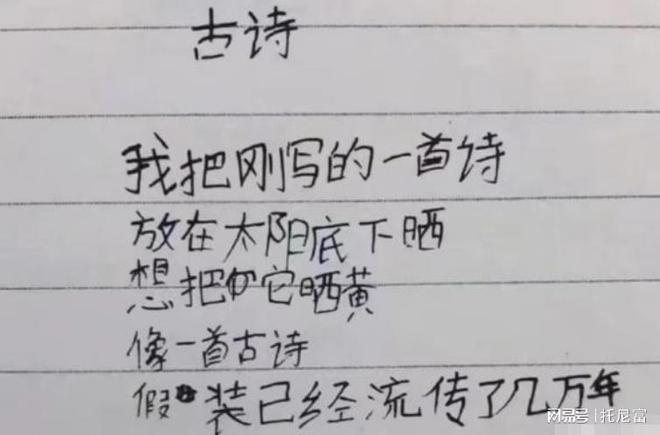 古诗
我把刚写的一首诗
放在太阳底下晒
想把它晒黄
像一首古诗
假装已经流传了几万年
搜狐号|托尼富